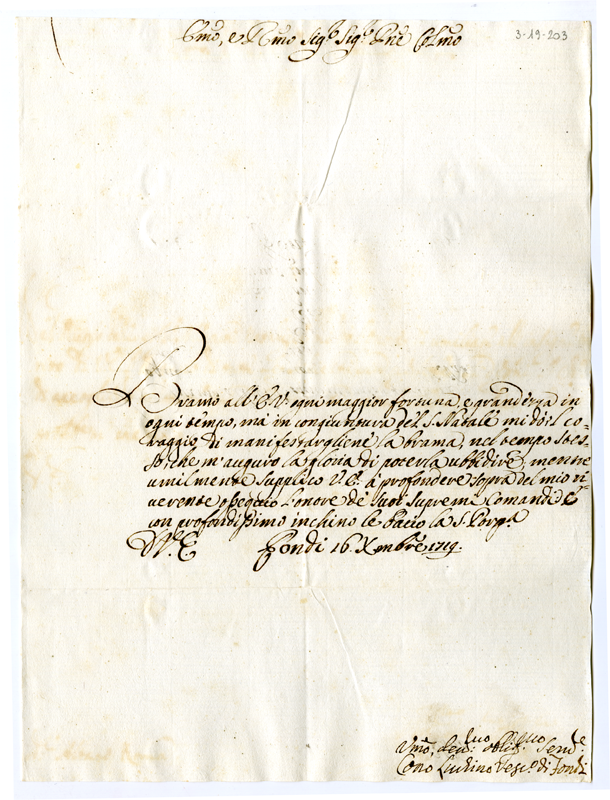 Emo, e Rmo Sig.r Sig.r Pne Colmo
3-19-203
Bramo all'E.V. ogni maggior fortuna, e grandezza in
ogni tempo, mà in congiuntura del S. Natale mi dò il co-
raggio di manifestargliene la brama, nel tempo stes-
so, che m'auguro la gloria di poterla ubbidire, mentre
umilmente supplico V.E. à profondere sopra del mio ri-
verente ossequio l'onore de' suoi supremi Comandi, e
con profondissimo inchino le bacio la S. Porp.a
D. V. E. Fondi 16. Xembre 1719.
Vmo, Deu.mo oblig.mo Serud.e
Vesc.o di Fondi